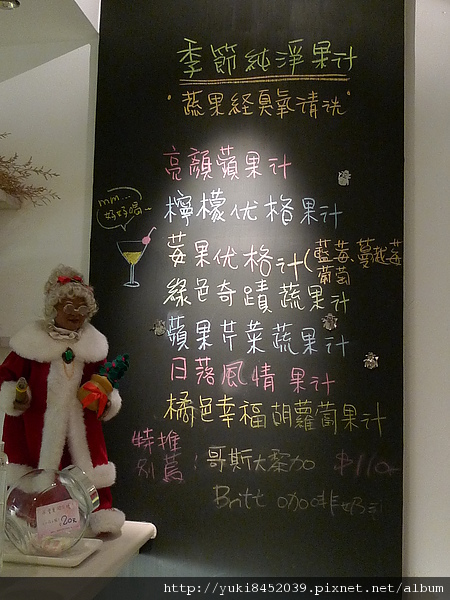 季節純淨果汁
"蔬果経臭氧清洗"
亮顏蘋果汁
mm...
好好喝~
檸檬优格果汁
莓果优格汁(藍莓、蔓越莓
葡萄
綠色奇蹟蔬果汁
蘋果芹菜蔬果汁
日落風情果汁
橘色幸福胡蘿蔔果汁
特推
別薦：哥斯大黎加 $110
Britt 咖啡
120
http://yuki8452039.pixnet.net/album